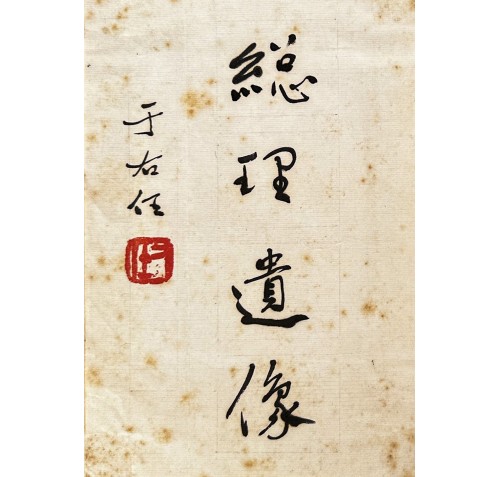 総理遺像
于右任